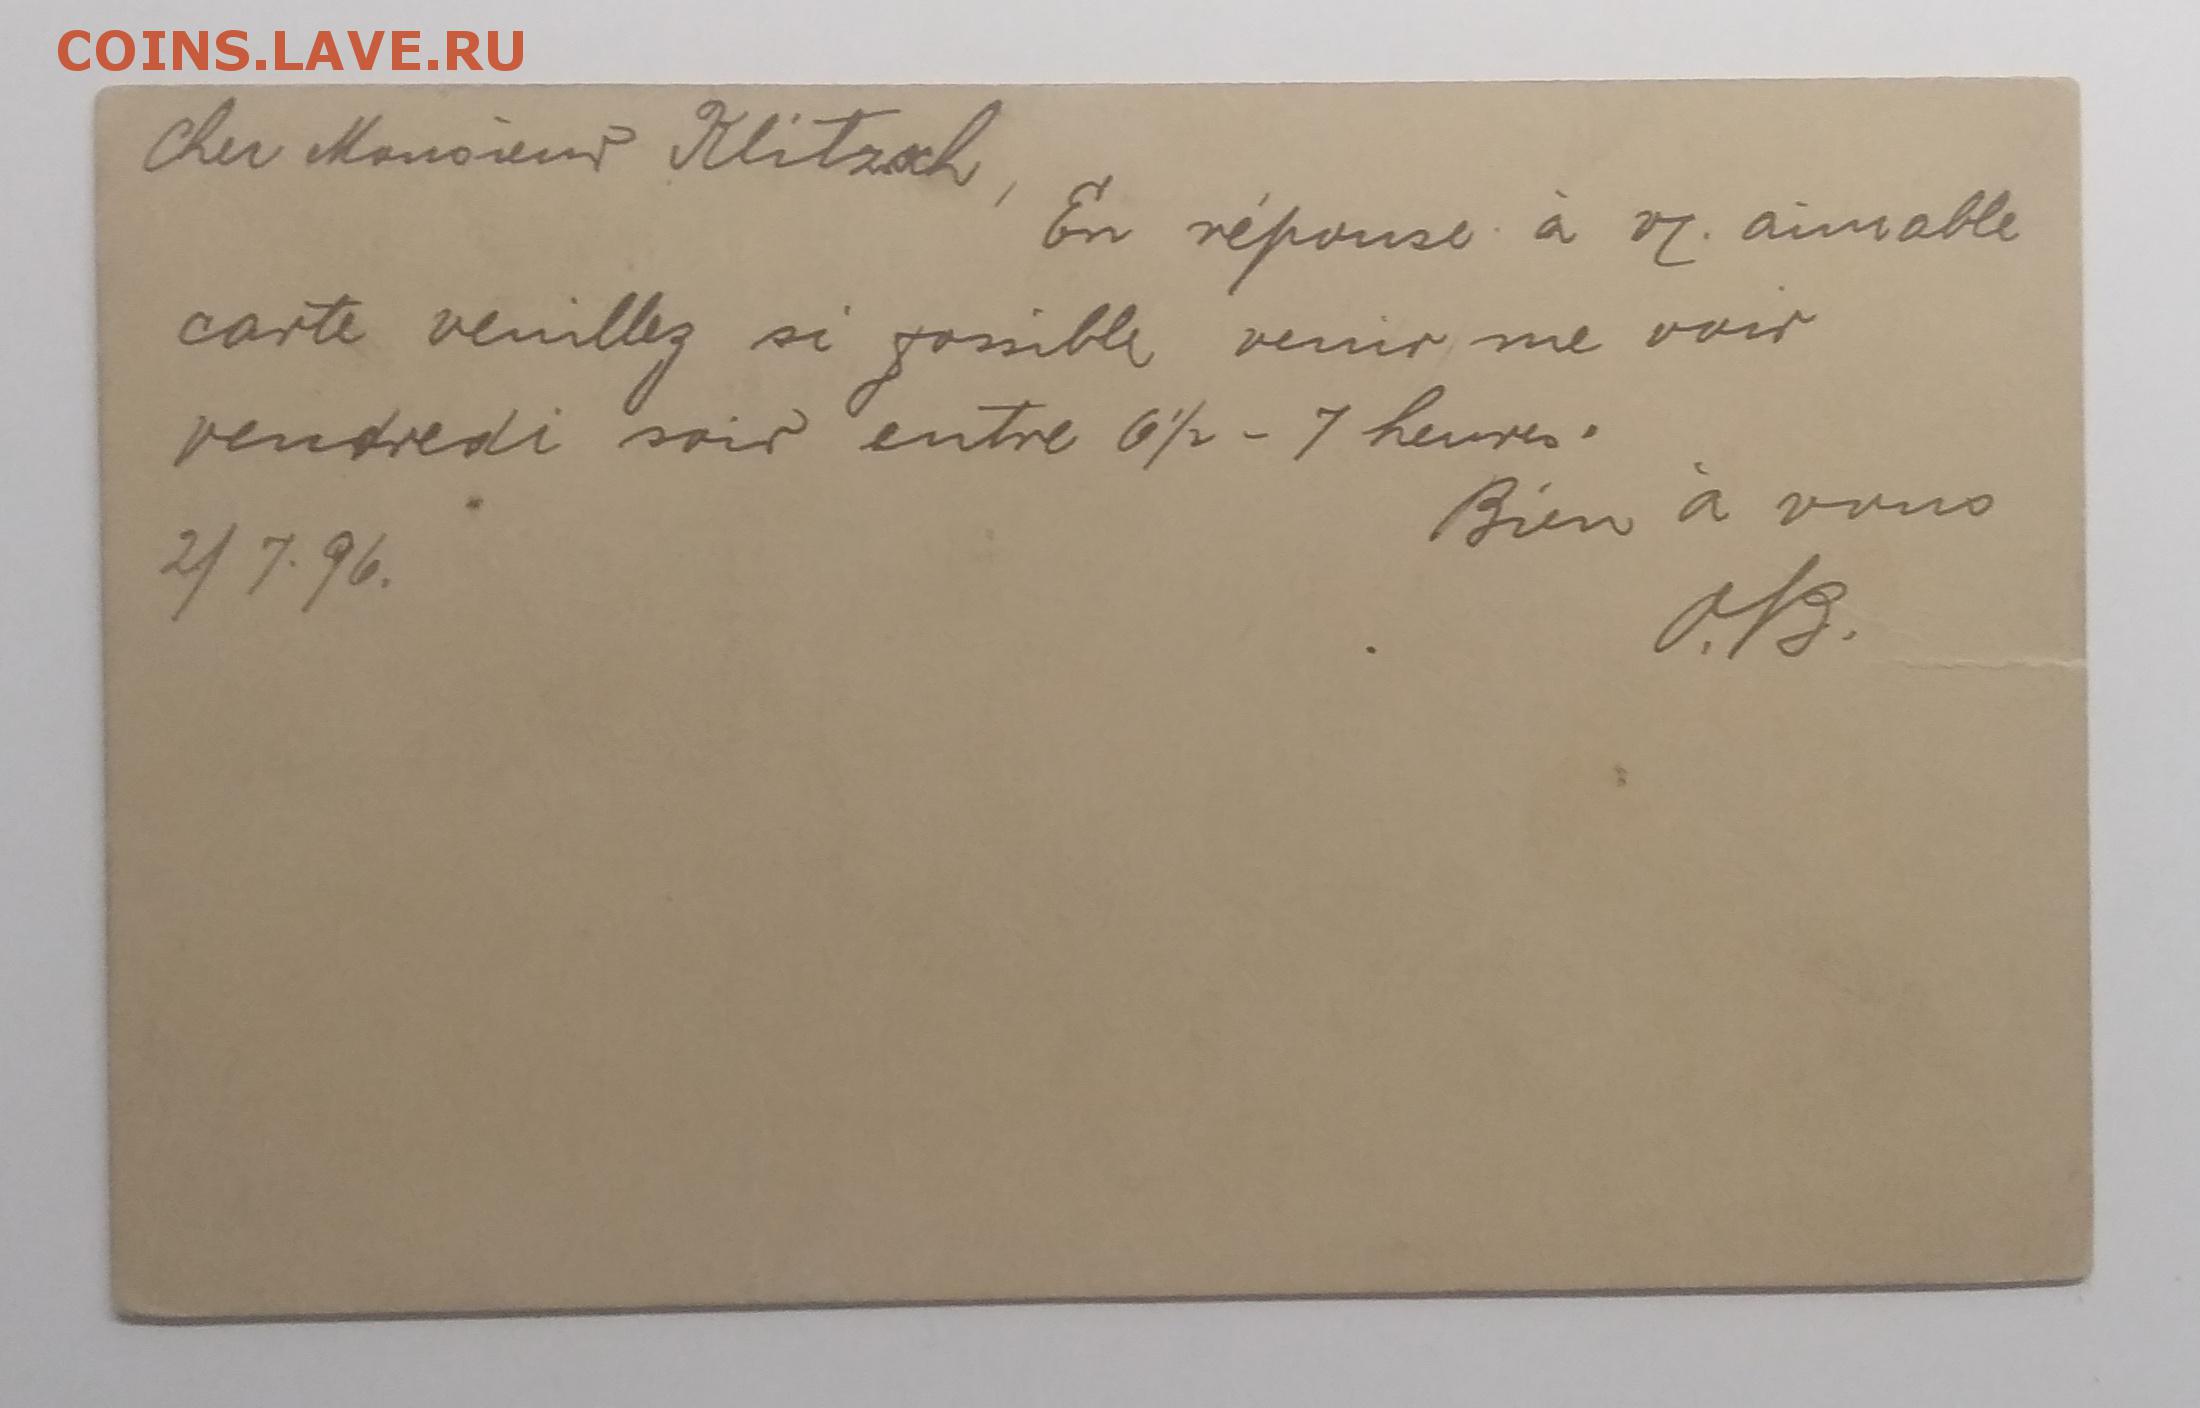 COINS.LAVE.RU
Cher Monsieur Klitzsch,
En réponse à vz. aimable
carte veuillez si possible venir me voir
vendredi soir entre 6 1/2 - 7 heures.
Bien à vous
2/ 7. 96.
O.B.